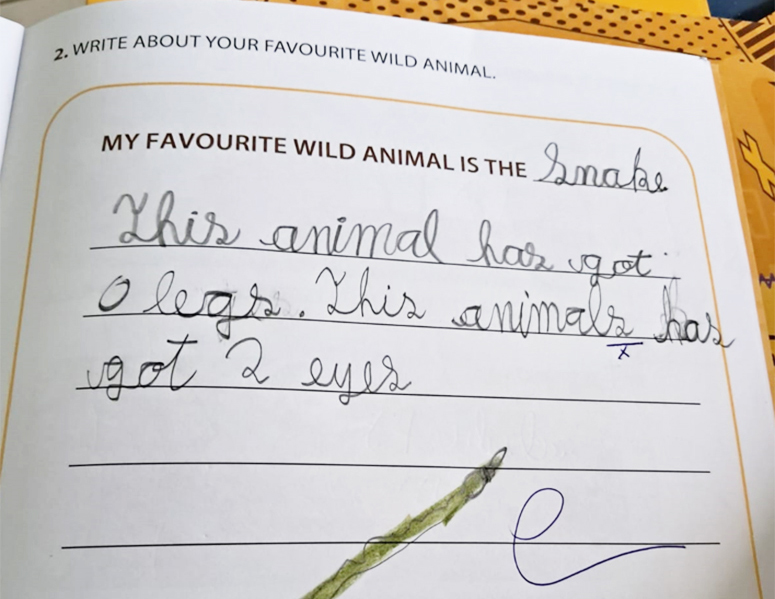 2. WRITE ABOUT YOUR FAVOURITE WILD ANIMAL.
MY FAVOURITE WILD ANIMAL IS THE Snake.
This animal has got
0 legs. This animals has
got 2 eyes